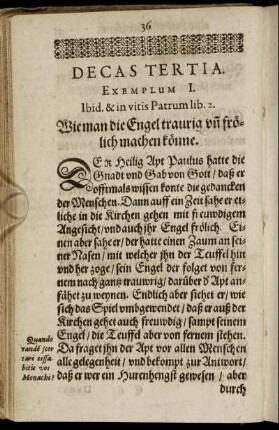 36
DECAS TERTIA.
EXEMPLUM I.
Ibid. & in vitis Patrum lib. 2.
Wie man die Engel traurig vñ frö-
lich machen könne.
DER Heilig Apt Paulus hatte die
Gnadt vnd Gab von Gott / daß er
offtmals wissen konte die gedancken
der Menschen. Dann auff ein Zeit sahe er et-
liche in die Kirchen gehen mit freuwdigem
Angesicht / vnd auch ihr Engel frölich. Ei-
nen aber sahe er / der hatte einen Zaum an sei-
ner Nasen / mit welcher jhn der Teuffel hin
vnd her zoge / sein Engel der folget von fer-
nem nach gantz trauwrig / darüber d' Apt an-
fähet zu weynen. Endlich aber siehet er / wie
sich das Spiel vmbgewendet / daß er auß der
Kirchen gehet auch freuwdig / sampt seinem
Engel / die Teuffel aber von fernem stehen.
Da fraget jhn der Apt vor allen Menschen
alle gelegenheit / vnd bekompt zur Antwort /
daß er wer ein Hurenhengst gewesen / aber
durch
Quando
tandē scor
tari cessa-
bitis vos
Monachi?